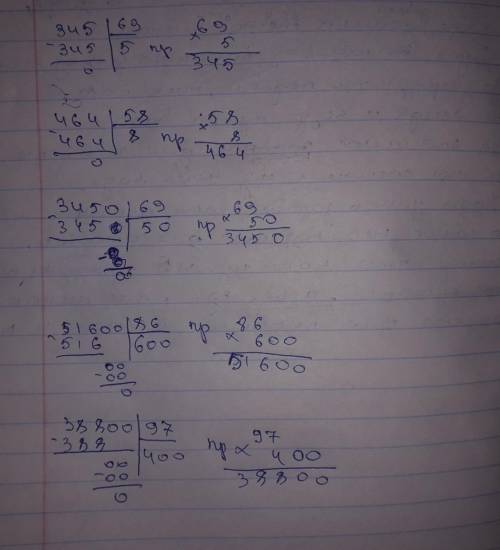 345 | 69 × 69
-345 | 5 пр 5
0 345
464 | 58 × 58
-464 | 8 пр 8
0 464
3450 | 69 × 69
-3450 | 50 пр 50
0 3450
51600 | 86 пр × 86
-516 | 600 600
00 51600
-00
0
38800 | 97 пр × 97
-388 | 400 400
00 38800
-00
0